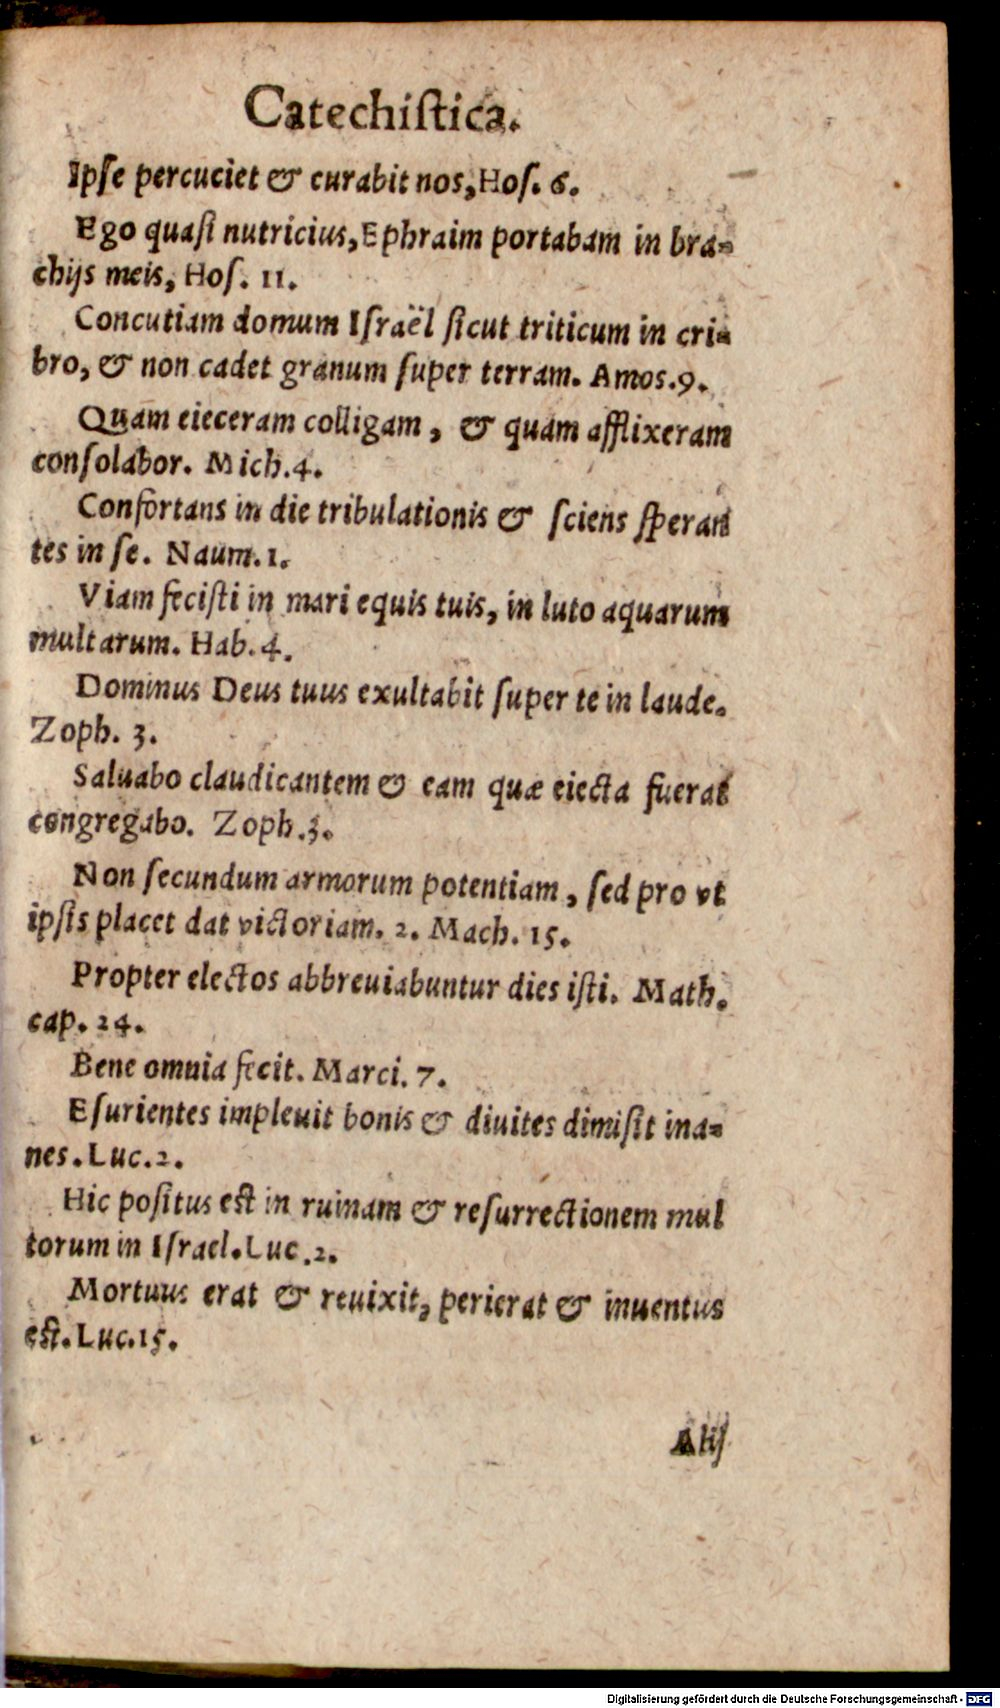 Catechiſtica.
Ipſe percuciet & curabit nos, Hoſ. 6.
Ego quaſi nutricius, Ephraim portabam in bra-
chijs meis, Hoſ. 11.
Concutiam domum Iſraël ſicut triticum in cri-
bro, & non cadet granum ſuper terram. Amos. 9.
Quam eieceram colligam, & quam afflixeram
conſolabor. Mich. 4.
Confortans in die tribulationis & ſciens ſperan
tes in ſe. Naum. 1.
Viam feciſti in mari equis tuis, in luto aquarum
multarum. Hab. 4.
Dominus Deus tuus exultabit ſuper te in laude.
Zoph. 3.
Saluabo claudicantem & eam quæ eiecta fuerat
congregabo. Zoph. 3.
Non ſecundum armorum potentiam, ſed pro vt
ipſis placet dat victoriam. 2. Mach. 15.
Propter electos abbreuiabuntur dies iſti. Math.
cap. 24.
Bene omnia fecit. Marci. 7.
Eſurientes impleuit bonis & diuites dimiſit ina-
nes. Luc. 2.
Hic poſitus eſt in ruinam & reſurrectionem mul
torum in Iſrael. Luc. 2.
Mortuus erat & reuixit, perierat & inuentus
eſt. Luc. 15.
Digitalisierung gefördert durch die Deutsche Forschungsgemeinschaft - DFG